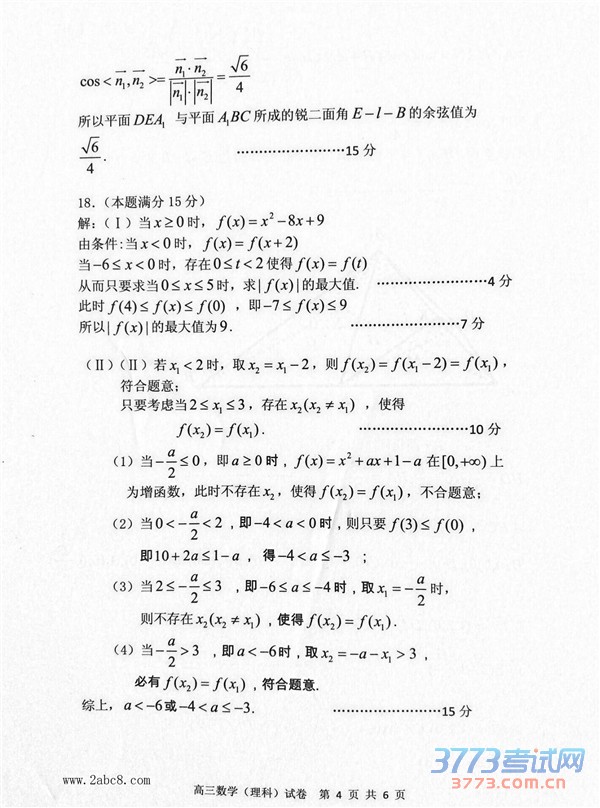 cos < n₁, n₂ >= n₁·n₂ / |n₁|·|n₂| = √6/4
所以平面 DEA₁ 与平面 A₁BC 所成的锐二面角 E－l－B 的余弦值为
√6/4. ························15 分
18．（本题满分 15 分）
解：（Ⅰ）当 x≥0 时， f(x)=x²−8x+9
由条件:当 x<0 时， f(x)=f(x+2)
当−6≤x<0 时，存在 0≤t<2 使得 f(x)=f(t)
从而只要求当 0≤x≤5 时，求| f(x)|的最大值. ························4 分
此时 f(4)≤f(x)≤f(0) ，即−7≤f(x)≤9
所以| f(x)|的最大值为 9． ························7 分
（Ⅱ）（Ⅱ）若 x₁<2 时，取 x₂=x₁−2，则 f(x₂)=f(x₁−2)=f(x₁)，
符合题意；
只要考虑当 2≤x₁≤3，存在 x₂(x₂≠x₁) ，使得
f(x₂)=f(x₁)． ························10 分
（1）当−a/2≤0，即 a≥0 时， f(x)=x²+ax+1−a 在[0,+∞) 上
为增函数，此时不存在 x₂，使得 f(x₂)=f(x₁)，不合题意；
（2）当 0<−a/2<2 ，即−4<a<0 时，则只要 f(3)≤f(0)，
即10+2a≤1−a， 得−4<a≤−3 ；
（3）当 2≤−a/2≤3 ，即−6≤a≤−4 时，取 x₁=−a/2 时，
则不存在 x₂(x₂≠x₁)，使得 f(x₂)=f(x₁)．
（4）当−a/2>3 ，即 a<−6时，取 x₂=−a−x₁>3，
必有 f(x₂)=f(x₁)，符合题意.
综上，a<−6或−4<a≤−3. ························15 分
3773考试网
www.2abc8.com
高三数学（理科）试卷 第 4 页 共 6 页
3773.com.cn